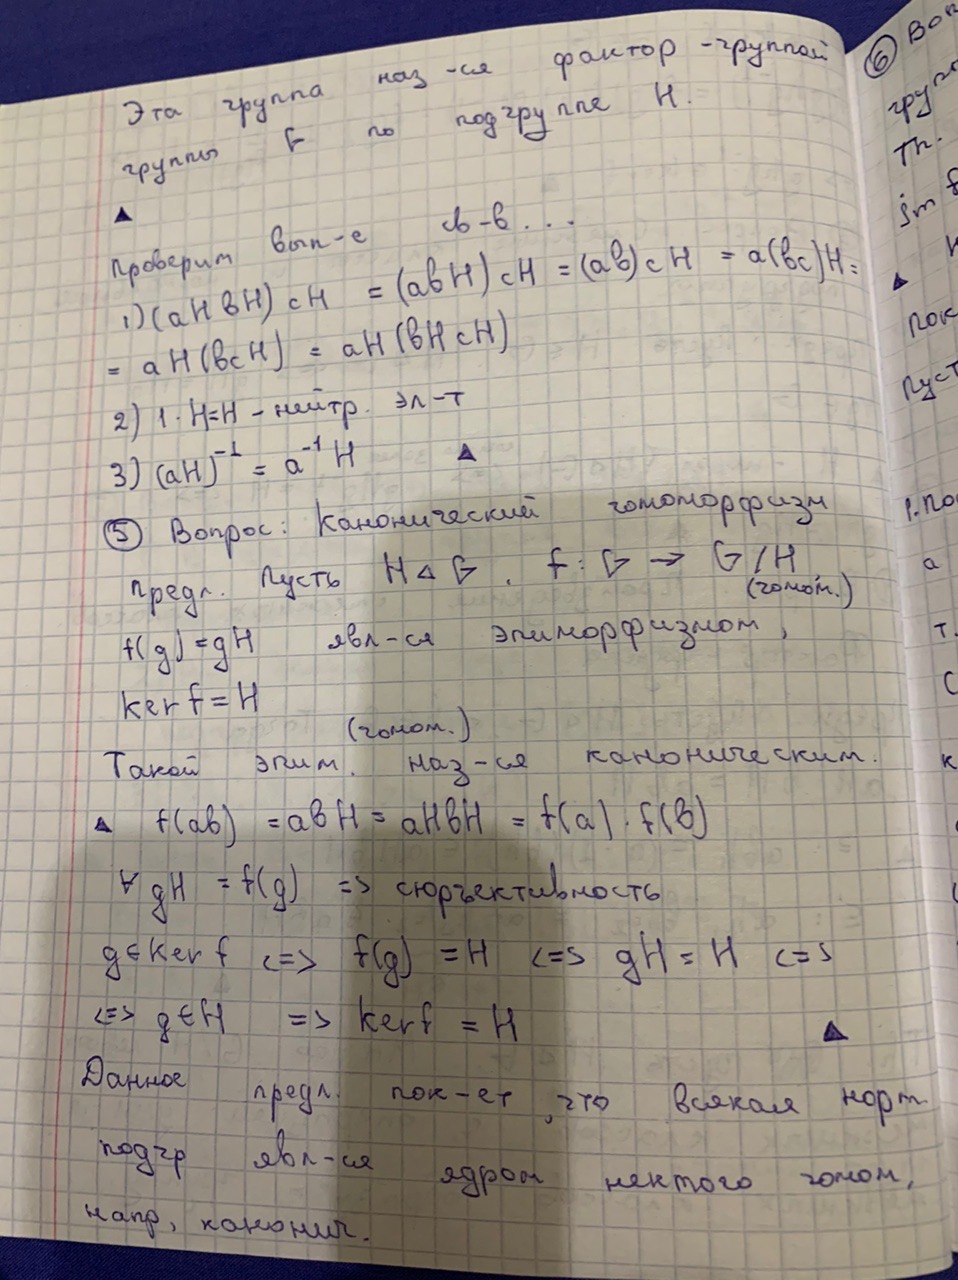 Эта группа наз-ся фактор-группой
группы G по подгруппе H.
▲
Проверим вып-е св-в...
1) (aH bH) cH = (abH) cH = (ab)cH = a(bc)H =
= aH(bcH) = aH(bH cH)
2) 1·H=H - нейтр. эл-т
3) (aH)⁻¹ = a⁻¹H ▲
⑤ Вопрос: Канонический гомоморфизм
Предл. Пусть H ⊲ G. f: G → G/H
(гомом.)
f(g)=gH явл-ся эпиморфизмом,
ker f = H
(гомом.)
Такой эпим. наз-ся каноническим.
▲ f(ab) = abH = aHbH = f(a)·f(b)
∀ gH = f(g) => сюръективность
g∈Ker f <=> f(g) = H <=> gH = H <=>
<=> g∈H => ker f = H ▲
Данное предл. пок-ет, что всякая норм.
подгр явл-ся ядром нектого гомом,
напр, канонич.
⑥ Воп
груп
Th.
Im f
▲
Пок
Пуст
1. По
а
т.
с
к